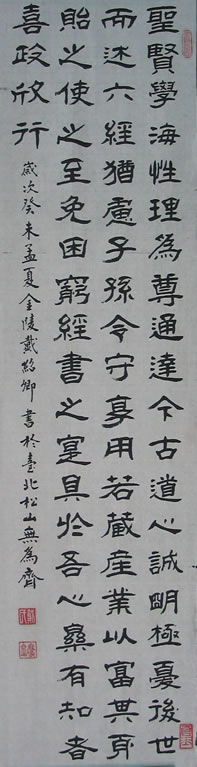 聖賢學海性理為尊通達今古道心誠明極憂後世
而述六經猶慮子孫令守享用若蔵產業以富其身
貽之使之至免困窮經書之寔具於吾心有知者
喜政欣行
歲次癸未孟夏金陵戴紹卿書於臺北松山無為齋